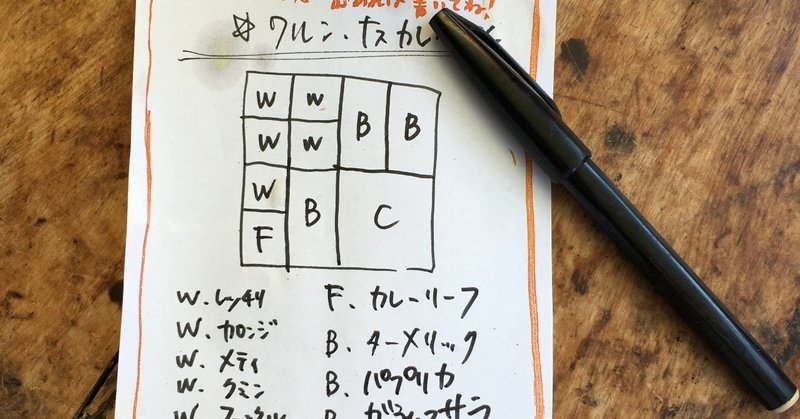 書いてね!
☆ ワルン・ナスカレ
W W B B
W W
W B C
F
W. レッチリ
W. カロンジ
W. メティ
W. クミン
W.
F. カレーリーフ
B. ターメリック
B. パプリカ
B. ガラムマサラ